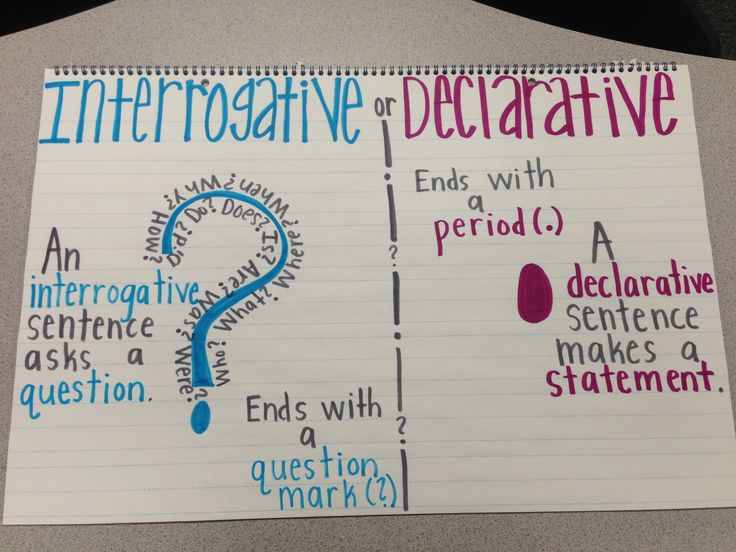 Interrogative or Declarative
An
interrogative
sentence
asks a
question.
How? Why? When? Where? What? Who?
Did? Do? Does? Is? Are? Was? Were?
?
Ends with
a
question
mark (?)
?
?
?
Ends with
a
period (.)
A
declarative
sentence
makes a
statement.